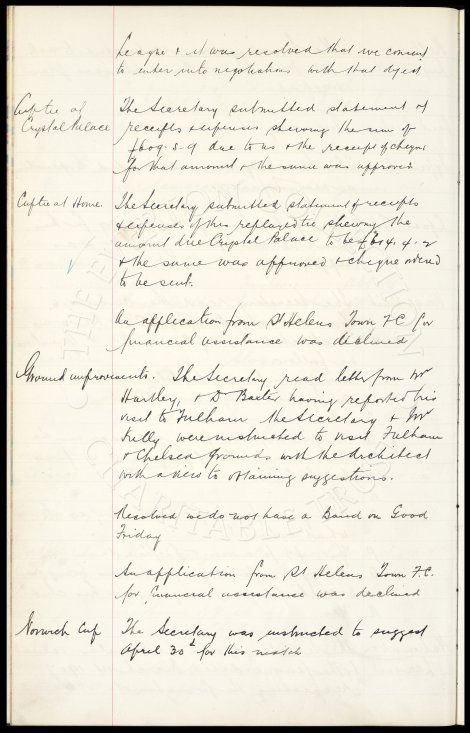 League & it was resolved that we consent
to enter into negotiations with that object
Cup tie at
Crystal Palace
The Secretary submitted statement of
receipts & expenses shewing the sum of
£609.5.9 due to us & the receipt of cheque
for that amount & the same was approved
Cup tie at Home.
The Secretary submitted statement of receipts
& expenses of this replayed tie shewing the
amount due Crystal Palace to be £614.4.2
& the same was approved & cheque ordered
to be sent.
An application from St Helens Town F.C. for
financial assistance was declined
Ground improvements. The Secretary read letter from Mr
Hartley, & Dr Baxter having reported his
visit to Fulham the Secretary & Mr
Kelly were instructed to visit Fulham
& Chelsea Grounds with the Architect
with a view to obtaining suggestions.
Resolved we do not have a Band on Good
Friday
An application from St Helens Town F.C.
for financial assistance was declined
Norwich Cup
The Secretary was instructed to suggest
April 30th for this match